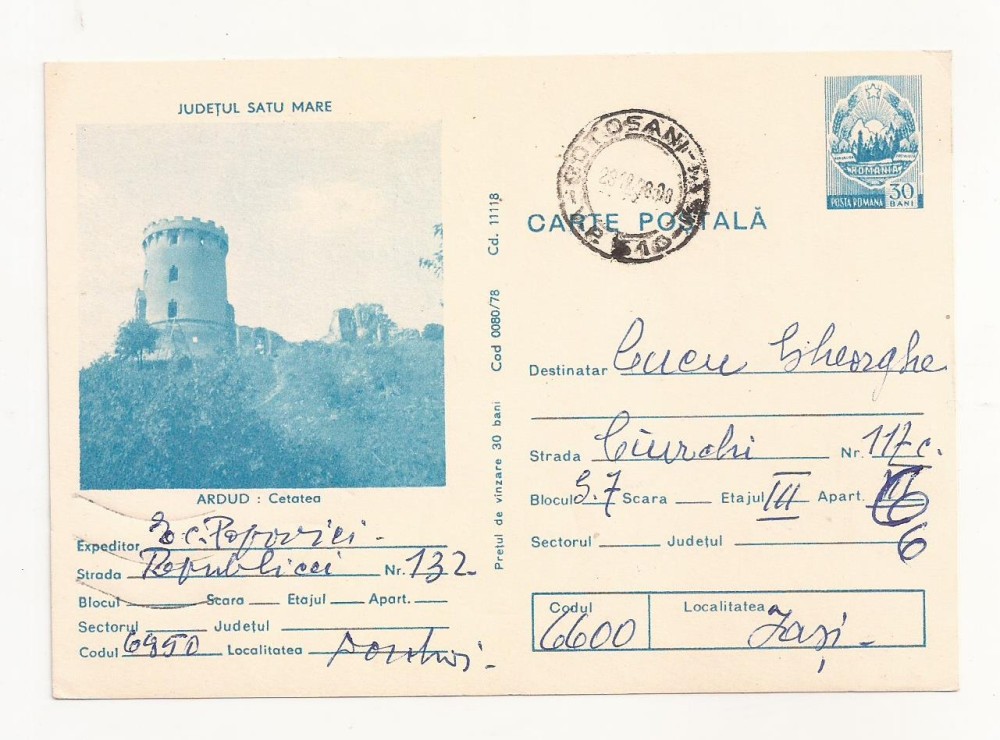 JUDEȚUL SATU MARE
ARDUD : Cetatea
Expeditor Ec. Popovici.
Strada Republicii Nr. 132.
Blocul Scara Etajul Apart.
Sectorul Județul
Codul 6950 Localitatea
Prețul de vînzare 30 bani Cod 0080/78 Cd. 11118
BOTOȘANI
ROMANIA
POSTA ROMANA 30 BANI
CARTE POȘTALĂ
Destinatar Cucu Gheorghe
Strada Ciurchi Nr. 117c.
Blocul Scara Etajul III Apart. 6
6
Sectorul Județul
Codul 6600 Localitatea Iași -